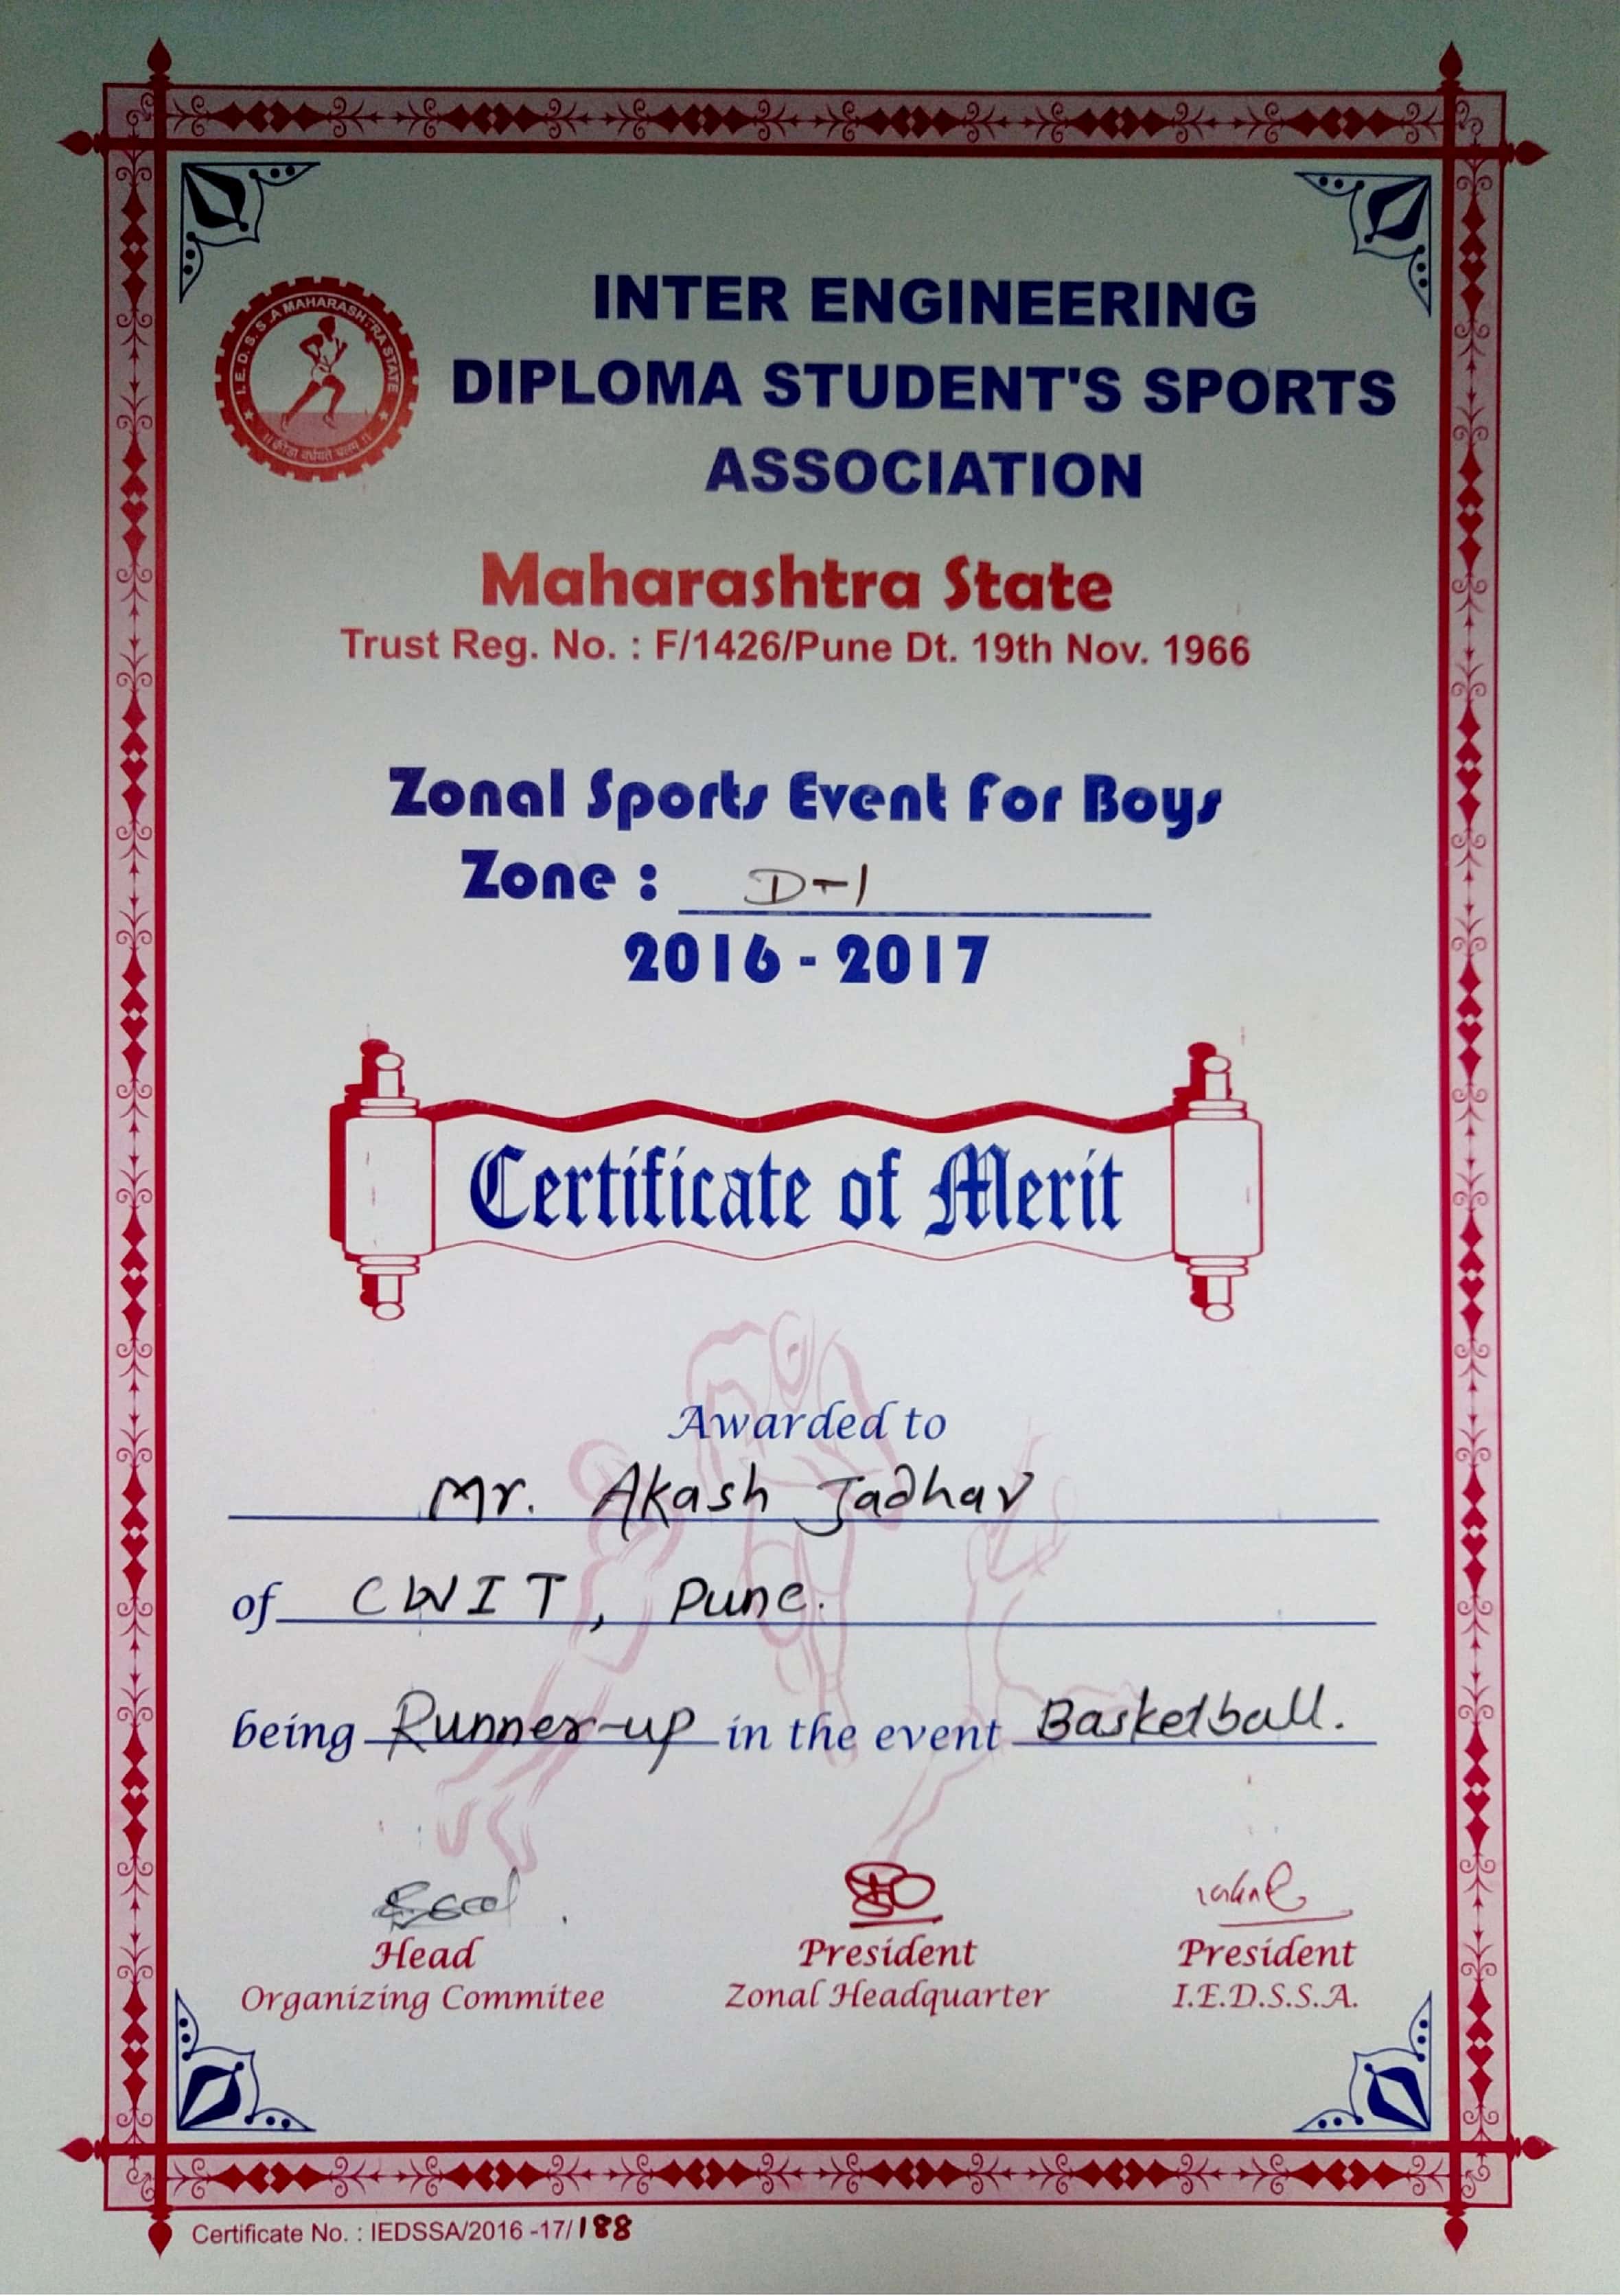 I.E.D.S.S.A MAHARASHTRA STATE
INTER ENGINEERING
DIPLOMA STUDENT'S SPORTS
ASSOCIATION
Maharashtra State
Trust Reg. No. : F/1426/Pune Dt. 19th Nov. 1966
Zonal Sports Event For Boys
Zone : D-1
2016 - 2017
Certificate of Merit
Awarded to
Mr. Akash Jadhav
of CWIT, Pune.
being Runner-up in the event Basketball.
Head
Organizing Commitee
President
Zonal Headquarter
President
I.E.D.S.S.A.
Certificate No. : IEDSSA/2016 -17/188